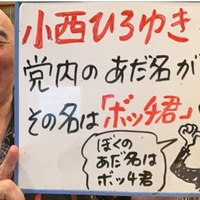 小西ひろゆき
党内のあだ名が
その名は「ボッチ君」
ぼくの
あだ名は
ボッチ君